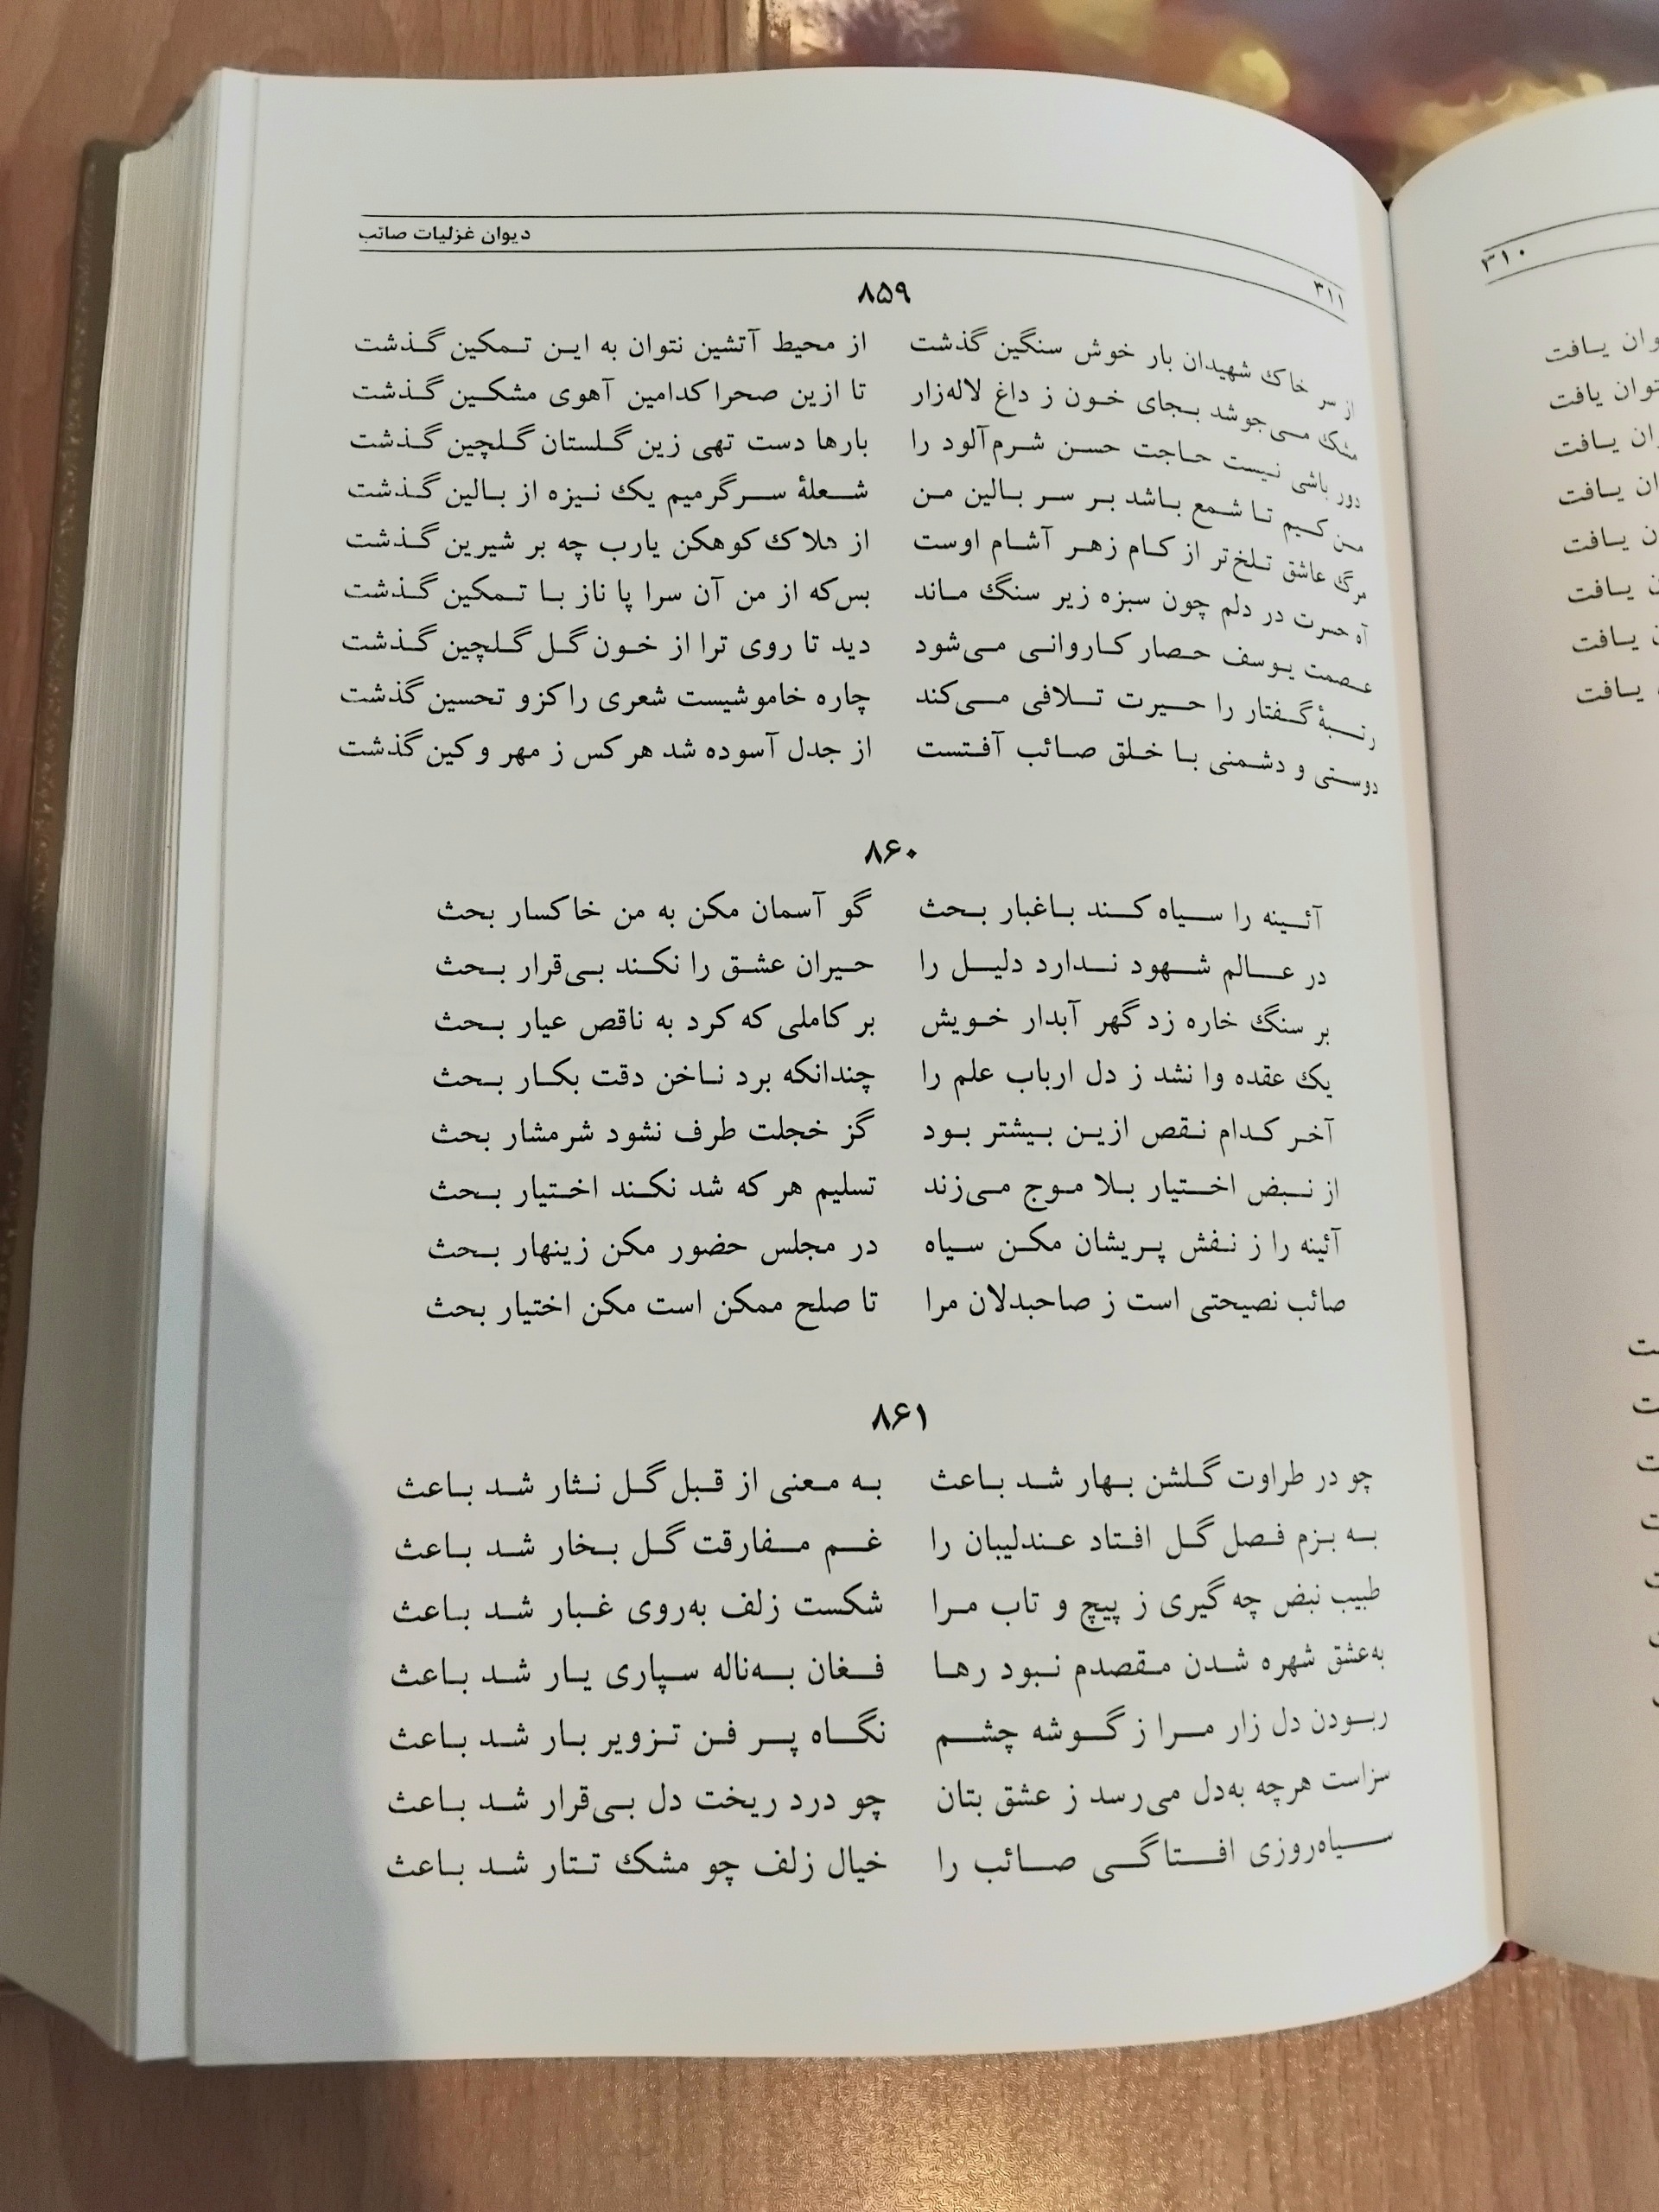 دیوان غزلیات صائب
۳۱۱
۸۵۹
از سر خاک شهیدان بار خوش سنگین گذشت از محیط آتشین نتوان به این تمکین گذشت
مشک می‌جوشد بجای خون ز داغ لاله‌زار تا ازین صحرا کدامین آهوی مشکین گذشت
دور باشی نیست حاجت حسن شرم‌آلود را بارها دست تهی زین گلستان گلچین گذشت
من کیم تا شمع باشد بر سر بالین من شعلهٔ سرگرمیم یک نیزه از بالین گذشت
مرگ عاشق تلخ‌تر از کام زهر آشام اوست از هلاک کوهکن یارب چه بر شیرین گذشت
آه حسرت در دلم چون سبزه زیر سنگ ماند بس‌که از من آن سرا پا ناز با تمکین گذشت
عصمت یوسف حصار کاروانی می‌شود دید تا روی ترا از خون گل گلچین گذشت
رتبهٔ گفتار را حیرت تلافی می‌کند چاره خاموشیست شعری را کزو تحسین گذشت
دوستی و دشمنی با خلق صائب آفتست از جدل آسوده شد هر کس ز مهر و کین گذشت
۸۶۰
آئینه را سیاه کند باغبار بحث گو آسمان مکن به من خاکسار بحث
در عالم شهود ندارد دلیل را حیران عشق را نکند بی‌قرار بحث
بر سنگ خاره زد گهر آبدار خویش بر کاملی که کرد به ناقص عیار بحث
یک عقده وا نشد ز دل ارباب علم را چندانکه برد ناخن دقت بکار بحث
آخر کدام نقص ازین بیشتر بود گز خجلت طرف نشود شرمشار بحث
از نبض اختیار بلا موج می‌زند تسلیم هر که شد نکند اختیار بحث
آئینه را ز نفش پریشان مکن سیاه در مجلس حضور مکن زینهار بحث
صائب نصیحتی است ز صاحبدلان مرا تا صلح ممکن است مکن اختیار بحث
۸۶۱
چو در طراوت گلشن بهار شد باعث به معنی از قبل گل نثار شد باعث
به بزم فصل گل افتاد عندلیبان را غم مفارقت گل بخار شد باعث
طبیب نبض چه گیری ز پیچ و تاب مرا شکست زلف به‌روی غبار شد باعث
به‌عشق شهره شدن مقصدم نبود رها فغان به‌ناله سپاری یار شد باعث
ربودن دل زار مرا ز گوشه چشم نگاه پر فن تزویر بار شد باعث
سزاست هرچه به‌دل می‌رسد ز عشق بتان چو درد ریخت دل بی‌قرار شد باعث
سیاه‌روزی افتاگی صائب را خیال زلف چو مشک تتار شد باعث
۳۱۰
وان یافت
توان یافت
ان یافت
ان یافت
ن یافت
یافت
یافت
یافت